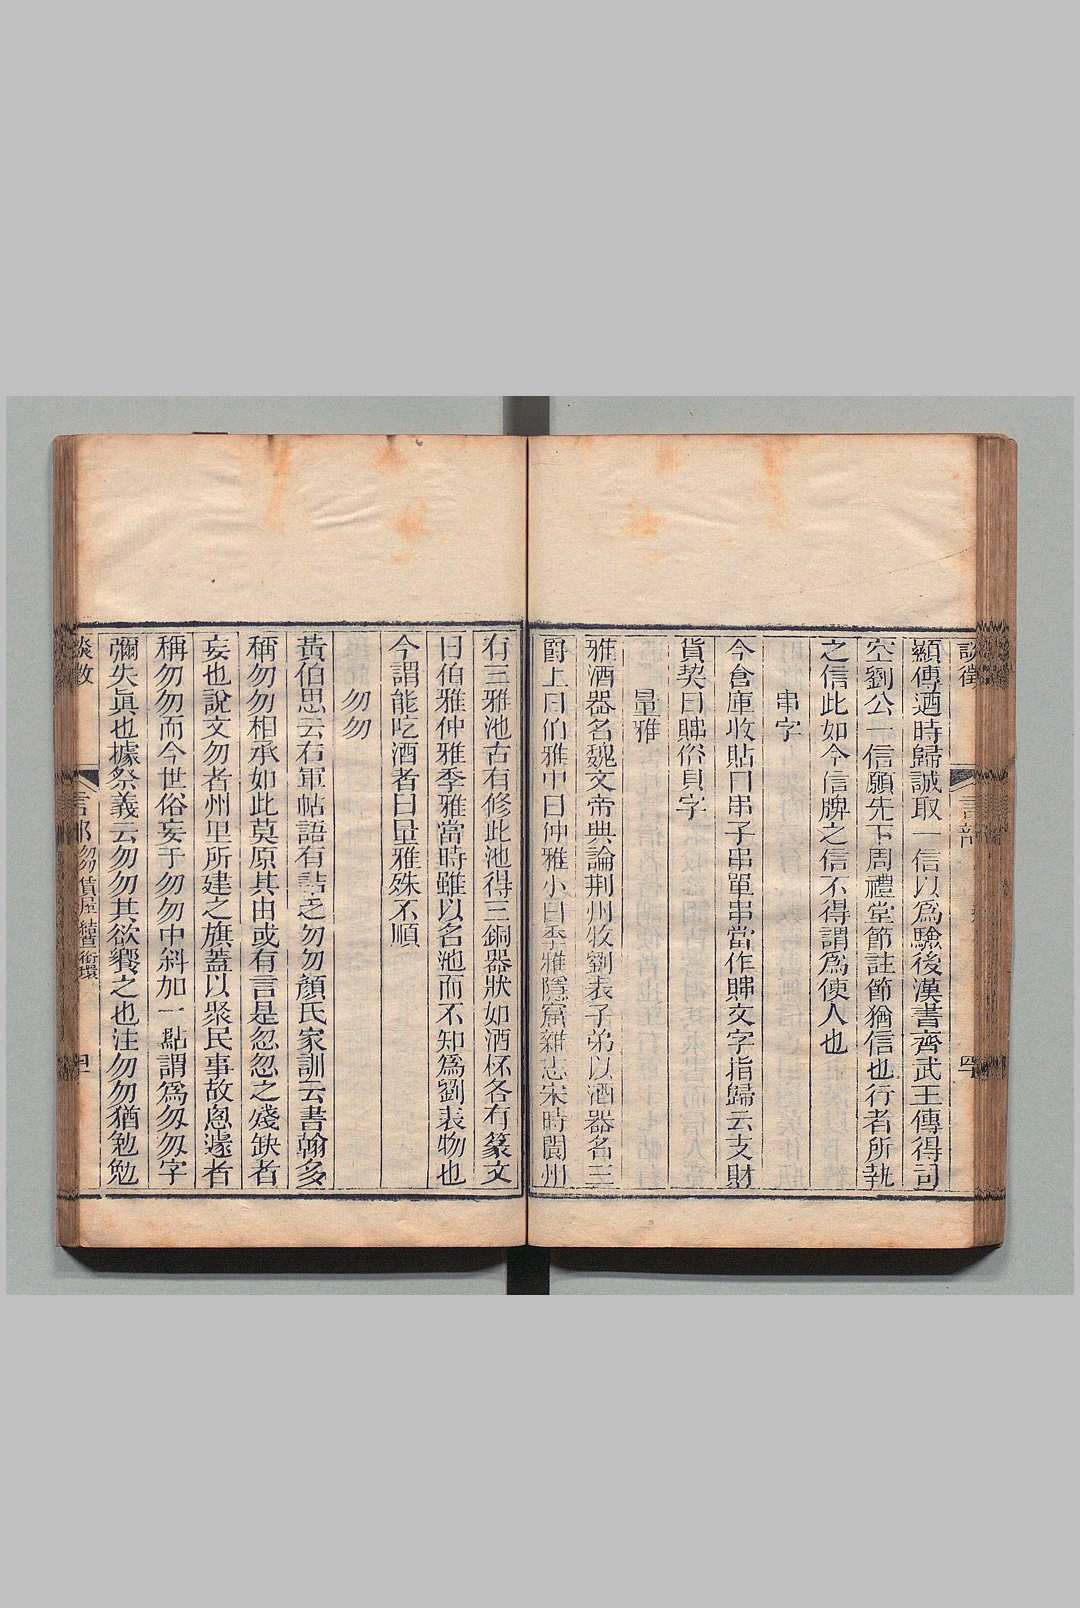 談徵
言部
顯傳遒時歸誠取一信以爲驗後漢書齊武王傳得司
空劉公一信願先下周禮堂節註節猶信也行者所執
之信此如今信牌之信不得謂爲使人也
串字
今倉庫收貼曰串子串單串當作賗文字指歸云支財
貨契曰賗俗貝字
量雅
雅酒器名魏文帝典論荆州牧劉表子弟以酒器名三
爵上曰伯雅中曰仲雅小曰季雅隱窟雜志宋時閬州
有三雅池古有修此池得三銅器狀如酒杯各有篆文
曰伯雅仲雅季雅當時雖以名池而不知爲劉表物也
今謂能吃酒者曰量雅殊不順
勿勿
黃伯思云右軍帖語有詰之勿勿顏氏家訓云書翰多
稱勿勿相承如此莫原其由或有言是忽忽之殘缺者
妄也說文勿者州里所建之旗蓋以聚民事故恖遽者
稱勿勿而今世俗妄于勿勿中斜加一點謂爲匆匆字
彌失眞也據祭義云勿勿其欲饗之也注勿勿猶勉勉
談徵
言部 勿勿 賃屋 結草銜環